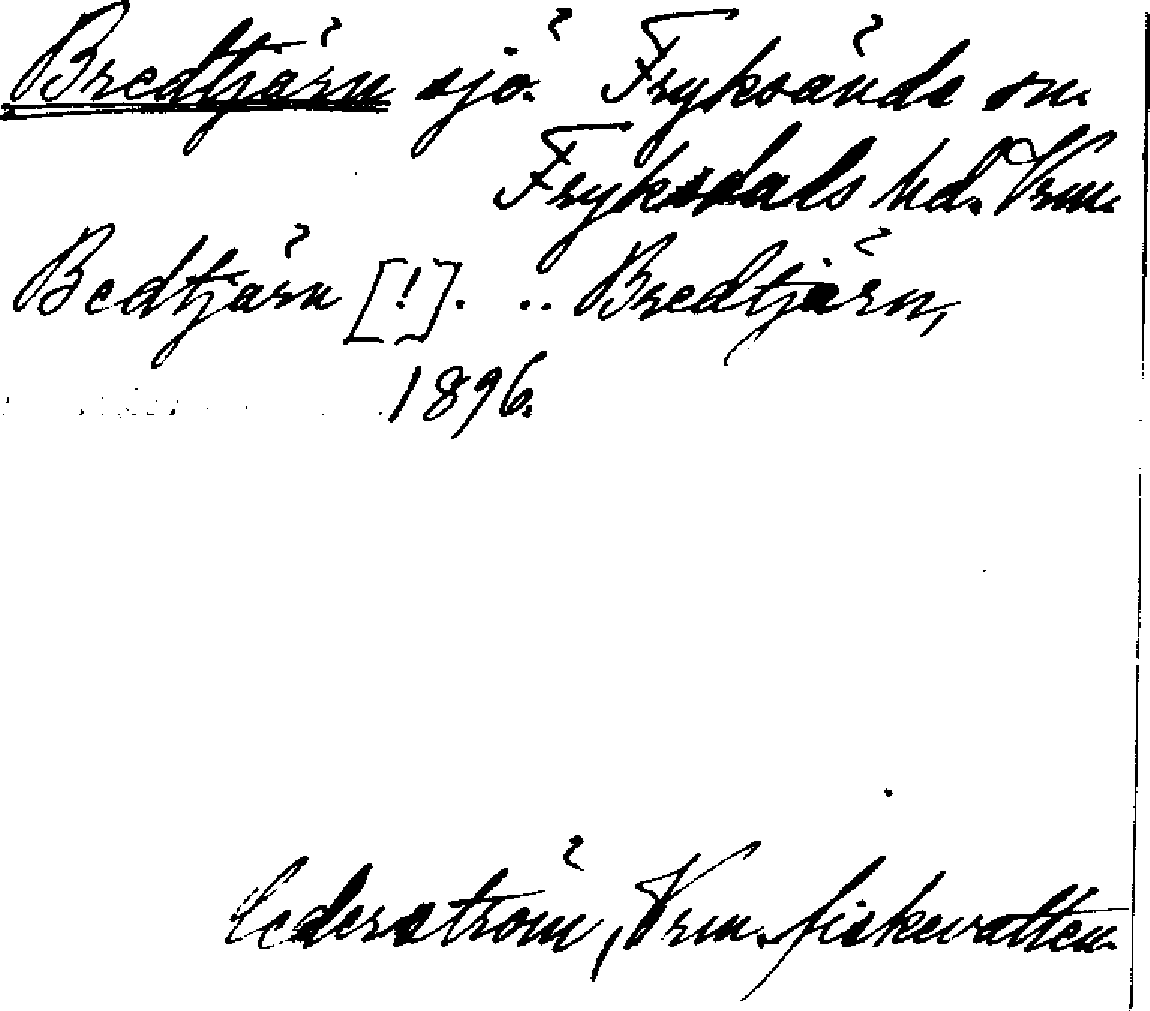 Bredtjärn sjö. Fryksände sn.
Fryksdals hd. Vrm.
Bedtjärn [!]. .. Bredtjärn,
1896.
Cederström, Vrm. fiskevatten.